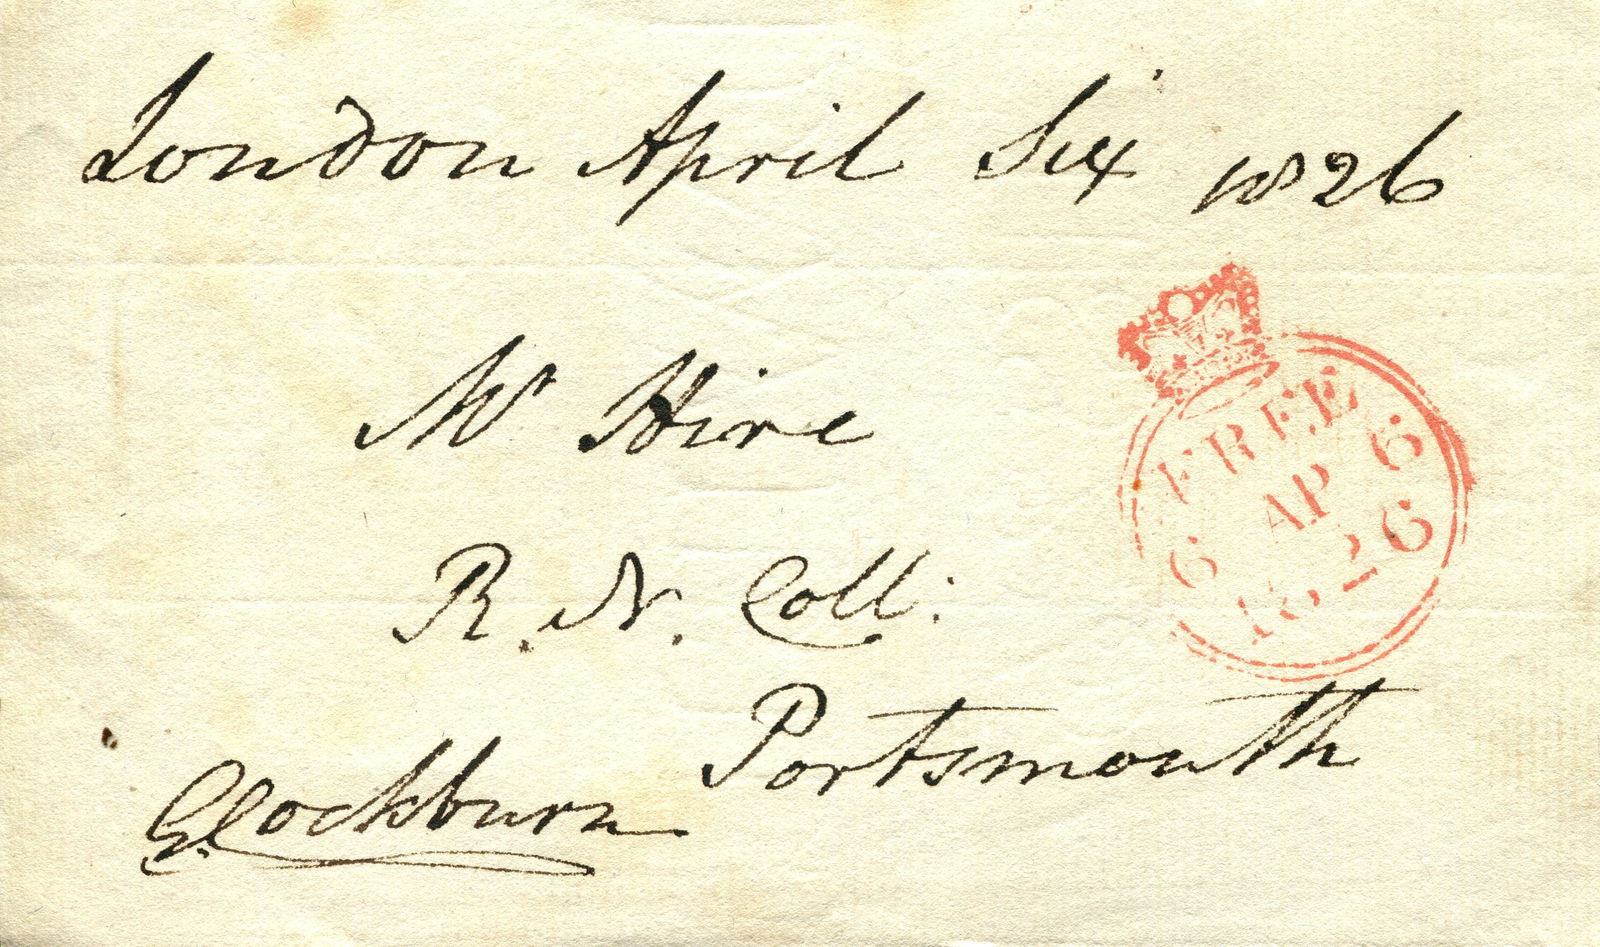 London April Six 1826
Mr Hire
R. N. Coll:
Portsmouth
G. Cockburn
FREE
6 AP 6
1826